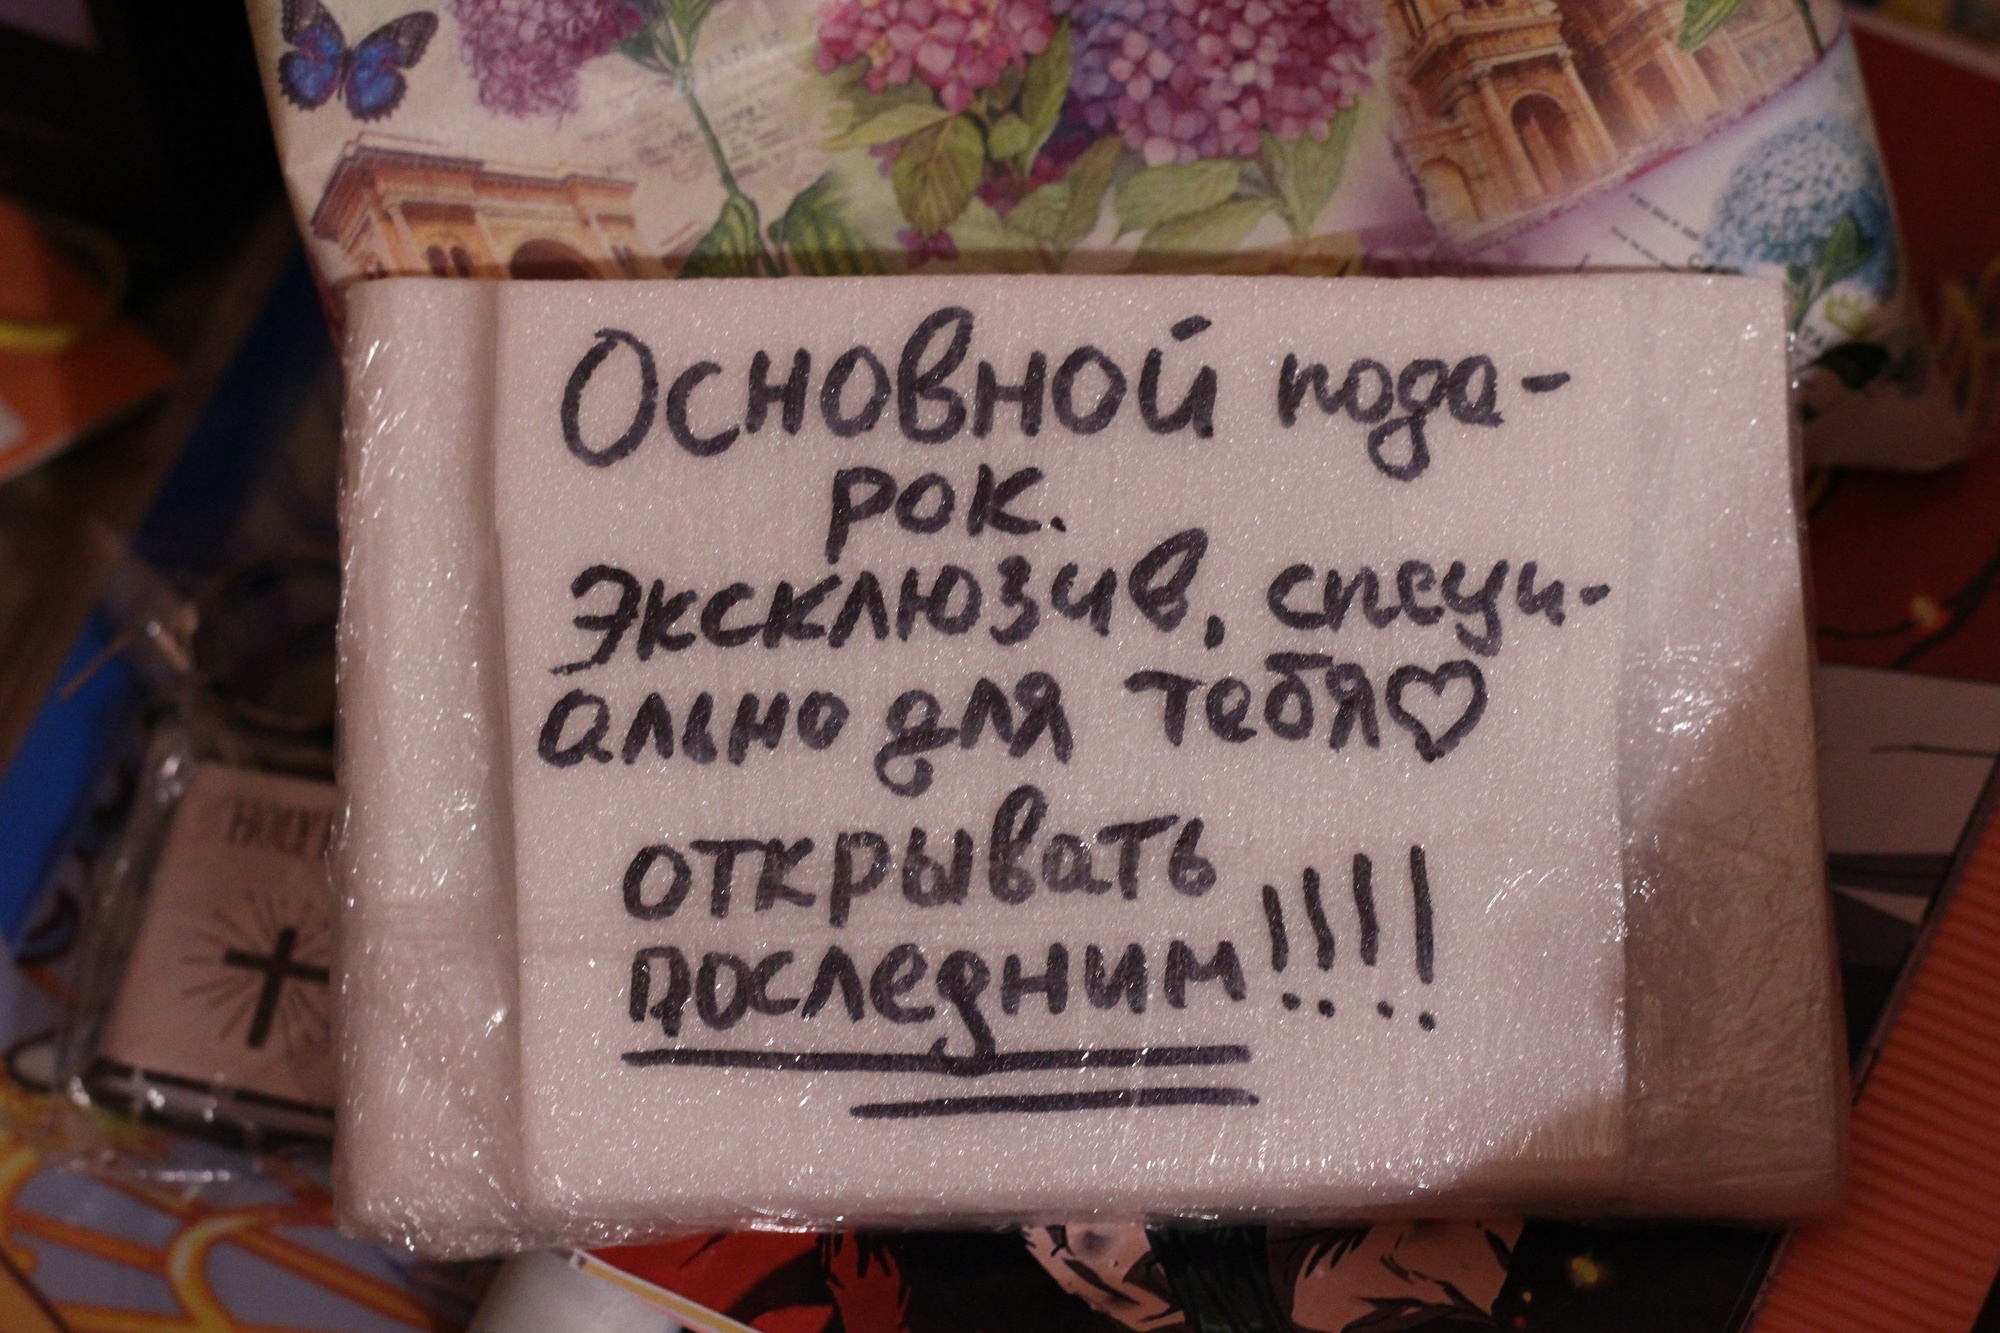 Основной пода-
рок.
Эксклюзив, специ-
ально для тебя♡
открывать
последним!!!!
HOLY